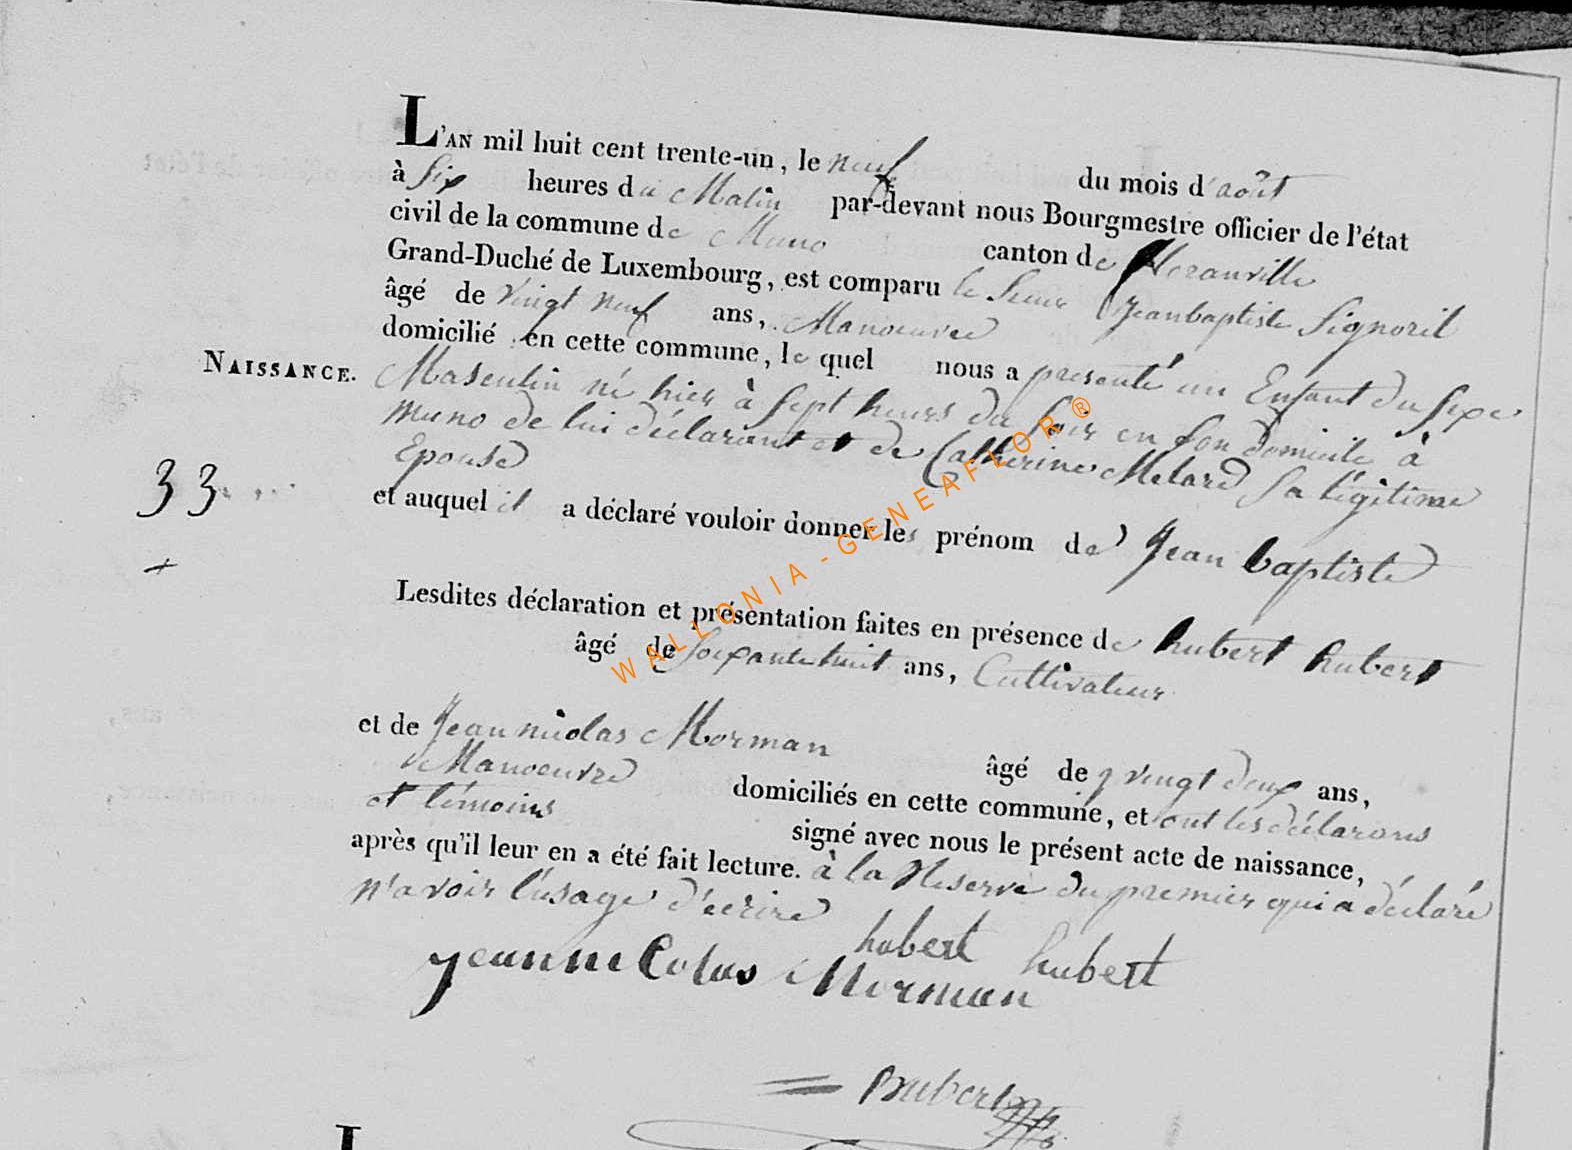 L'AN mil huit cent trente-un, le neuf du mois d'août
à six heures du Matin par-devant nous Bourgmestre officier de l'état
civil de la commune de Muno canton de
Grand-Duché de Luxembourg, est comparu le Sieur Jeanbaptiste Signoril
âgé de vingt neuf ans, Manoeuvre
domicilié en cette commune, le quel nous a presenté un Enfant du Sexe
NAISSANCE.
Masculin né hier à Sept heurs du Soir en Son domicile à
muno de lui déclarant et de Catherine Melard Sa légitime
Epouse
33
et auquel il a déclaré vouloir donner les prénom de Jean baptiste
Lesdites déclaration et présentation faites en présence de hubert hubert
âgé de Soixante huit ans, Cultivateur
et de Jean nicolas Morman âgé de vingt deux ans,
Manoeuvre domiciliés en cette commune, et ont les déclarans
et témoins signé avec nous le présent acte de naissance,
après qu'il leur en a été fait lecture. à la Réserve du premier qui a déclaré
n'avoir l'usage d'écrire
hubert hubert
jeannicolas Morman
L
WALLONIA - GENEAFLOR ®